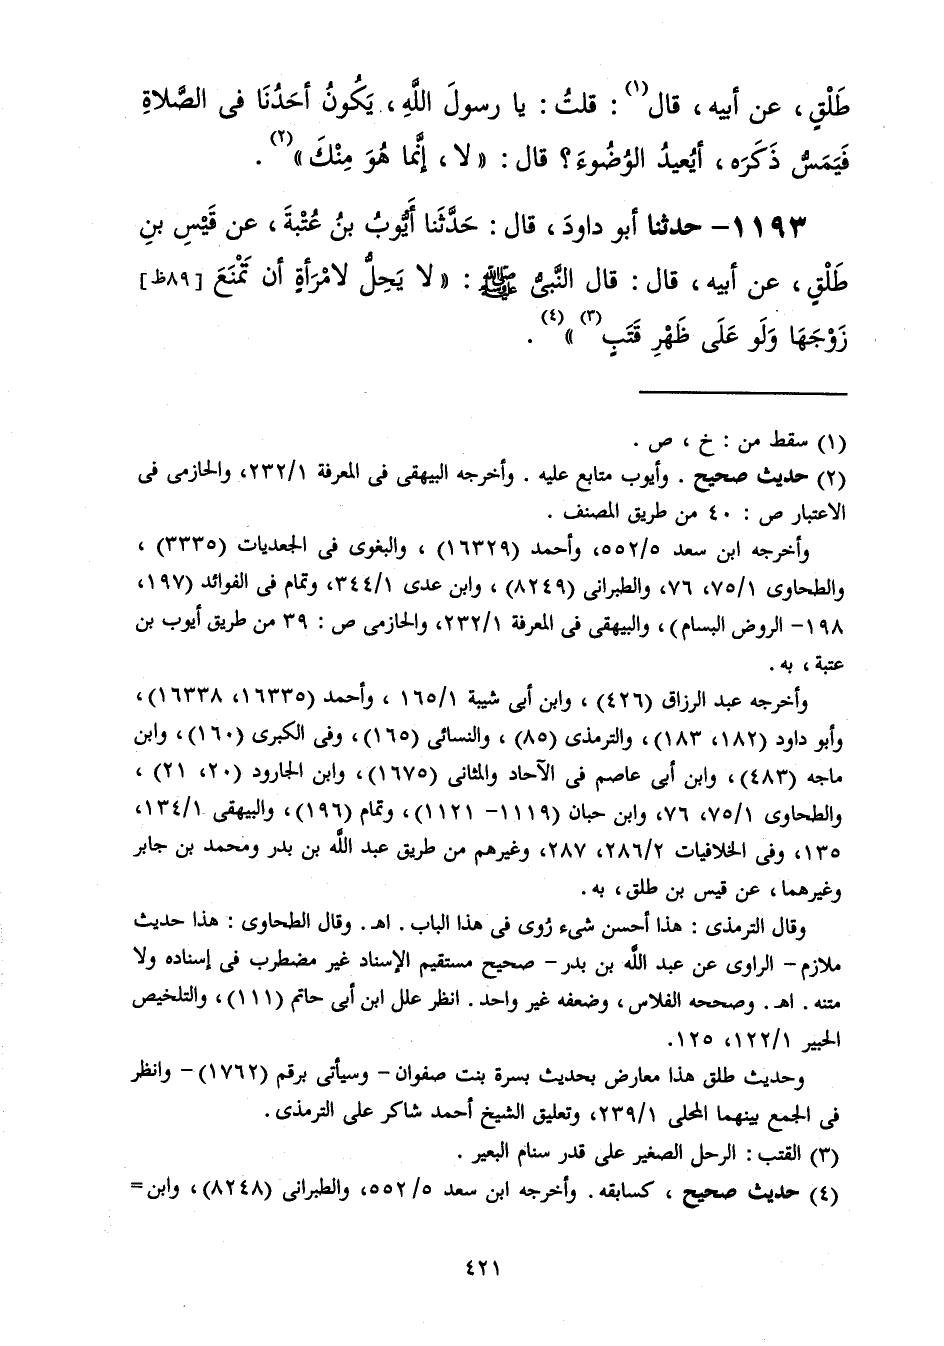 طَلْقٍ ، عن أبيه ، قال(١) : قلتُ : يا رسولَ اللَّهِ ، يَكُونُ أحَدُنَا فى الصَّلاةِ
فَيَمَسُّ ذَكَرَه ، أيُعيدُ الوُضُوءَ؟ قال : « لا ، إنَّما هُوَ مِنْكَ »(٢) .
١١٩٣- حدثنا أبو داودَ ، قال : حَدَّثَنا أَيُّوبُ بنُ عُتْبةَ ، عن قَيْسِ بنِ
طَلْقٍ ، عن أبيه ، قال : قال النَّبىُّ ﷺ : « لا يَحِلُّ لامْرَأةٍ أن تَمْنَعَ [٨٩ظ]
زَوْجَهَا وَلَو عَلَى ظَهْرِ قَتَبٍ(٣) »(٤) .
(١) سقط من : خ ، ص .
(٢) حديث صحيح . وأيوب متابع عليه . وأخرجه البيهقى فى المعرفة ٢٣٢/١، والحازمى فى
الاعتبار ص : ٤٠ من طريق المصنف .
وأخرجه ابن سعد ٥٥٢/٥، وأحمد (١٦٣٢٩) ، والبغوى فى الجعديات (٣٣٣٥) ،
والطحاوى ٧٥/١، ٧٦، والطبرانى (٨٢٤٩) ، وابن عدى ٣٤٤/١، وتمام فى الفوائد (١٩٧،
١٩٨- الروض البسام) ، والبيهقى فى المعرفة ٢٣٢/١، والحازمى ص : ٣٩ من طريق أيوب بن
عتبة ، به .
وأخرجه عبد الرزاق (٤٢٦) ، وابن أبى شيبة ١٦٥/١ ، وأحمد (١٦٣٣٥، ١٦٣٣٨) ،
وأبو داود (١٨٢، ١٨٣) ، والترمذى (٨٥) ، والنسائى (١٦٥) ، وفى الكبرى (١٦٠) ، وابن
ماجه (٤٨٣) ، وابن أبى عاصم فى الآحاد والمثانى (١٦٧٥) ، وابن الجارود (٢٠، ٢١) ،
والطحاوى ٧٥/١، ٧٦، وابن حبان (١١١٩- ١١٢١) ، وتمام (١٩٦) ، والبيهقى ١٣٤/١،
١٣٥، وفى الخلافيات ٢٨٦/٢، ٢٨٧، وغيرهم من طريق عبد اللَّه بن بدر ومحمد بن جابر
وغيرهما ، عن قيس بن طلق ، به .
وقال الترمذى : هذا أحسن شىء رُوى فى هذا الباب . اهـ . وقال الطحاوى : هذا حديث
ملازم - الراوى عن عبد اللَّه بن بدر - صحيح مستقيم الإسناد غير مضطرب فى إسناده ولا
متنه . اهـ . وصححه الفلاس ، وضعفه غير واحد . انظر علل ابن أبى حاتم (١١١) ، والتلخيص
الحبير ١٢٢/١، ١٢٥.
وحديث طلق هذا معارض بحديث بسرة بنت صفوان - وسيأتى برقم (١٧٦٢) - وانظر
فى الجمع بينهما المحلى ٢٣٩/١، وتعليق الشيخ أحمد شاكر على الترمذى .
(٣) القتب : الرحل الصغير على قدر سنام البعير .
(٤) حديث صحيح ، كسابقه . وأخرجه ابن سعد ٥٥٢/٥، والطبرانى (٨٢٤٨) ، وابن =
٤٢١